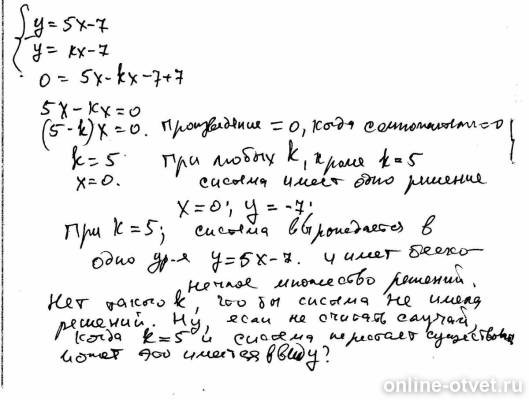 y = 5x - 7
y = kx - 7
0 = 5x - kx - 7 + 7
5x - kx = 0
(5 - k) x = 0. Произведение = 0, когда сомножитель = 0
k = 5 При любых k, кроме k = 5
x = 0. система имеет одно решение
x = 0; y = -7;
При k = 5; система вырождается в
одно ур-е y = 5x - 7. и имеет беско-
нечное множество решений.
Нет такого k, что бы система не имела
решений. Ну, если не считать случай,
когда k = 5 и система перестаёт существовать
может это имеется ввиду?
online-otvet.ru